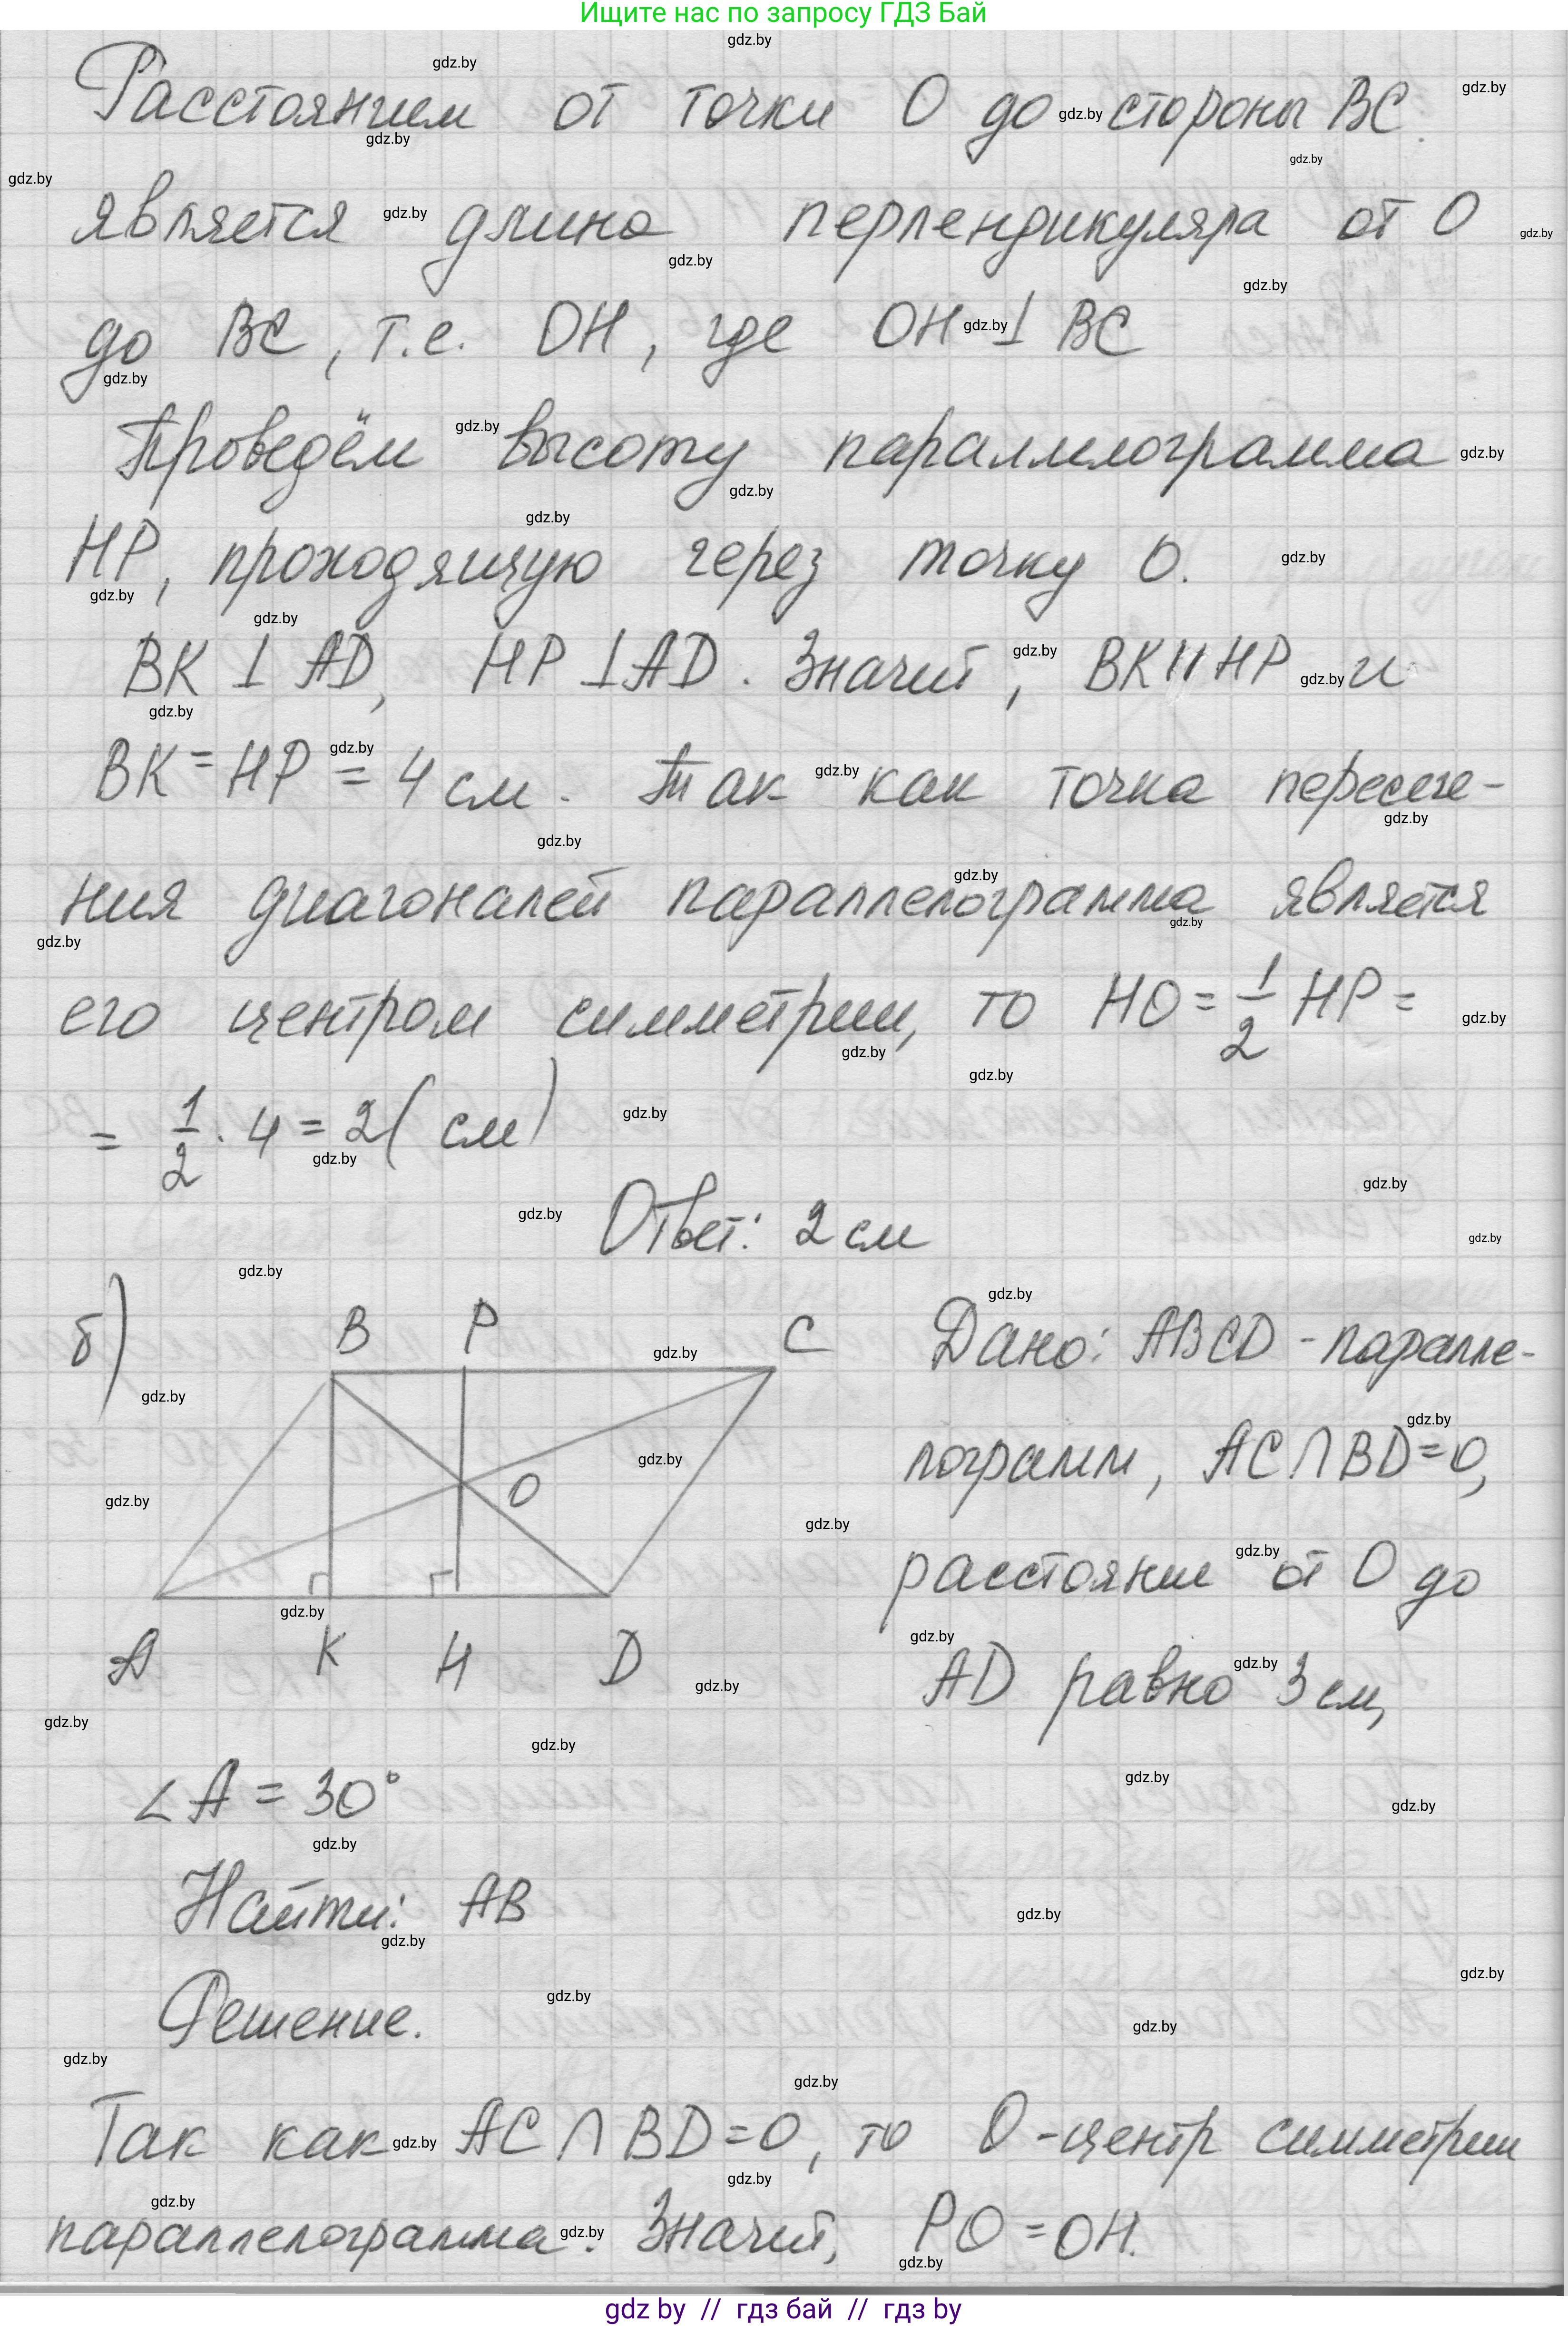 Ищите нас по запросу ГДЗ Бай
Расстоянием от точки О до стороны ВС
является длина перпендикуляра от О
до ВС, т.е. ОН, где ОН ⊥ ВС
Проведём высоту параллелограмма
НР, проходящую через точку О.
ВК ⊥ AD, НР ⊥ AD. Значит, ВК || НР и
ВК = НР = 4 см. Так как точка пересече-
ния диагоналей параллелограмма является
его центром симметрии, то НО = 1/2 НР =
= 1/2 · 4 = 2 (см)
Ответ: 2 см
б)
B P C
O
A K H D
Дано: ABCD - паралле-
лограмм, AC ∩ BD = O,
расстояние от О до
AD равно 3 см,
∠A = 30°
Найти: AB
Решение.
Так как AC ∩ BD = O, то О - центр симметрии
параллелограмма. Значит, PO = OH.
gdz by // гдз бай // гдз by